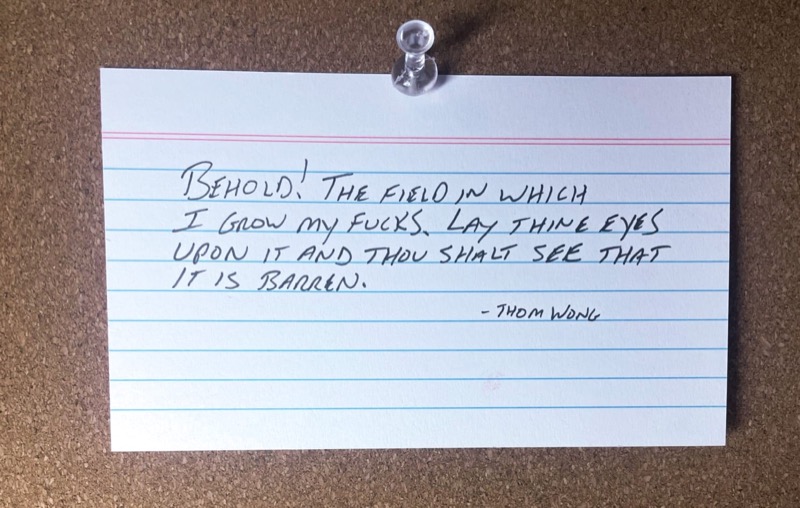 BEHOLD! THE FIELD IN WHICH
I GROW MY FUCKS. LAY THINE EYES
UPON IT AND THOU SHALT SEE THAT
IT IS BARREN.
- THOM WONG